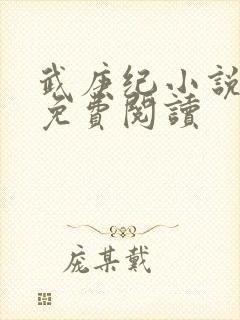 武庚纪小说
免費閱讀
庞某戴